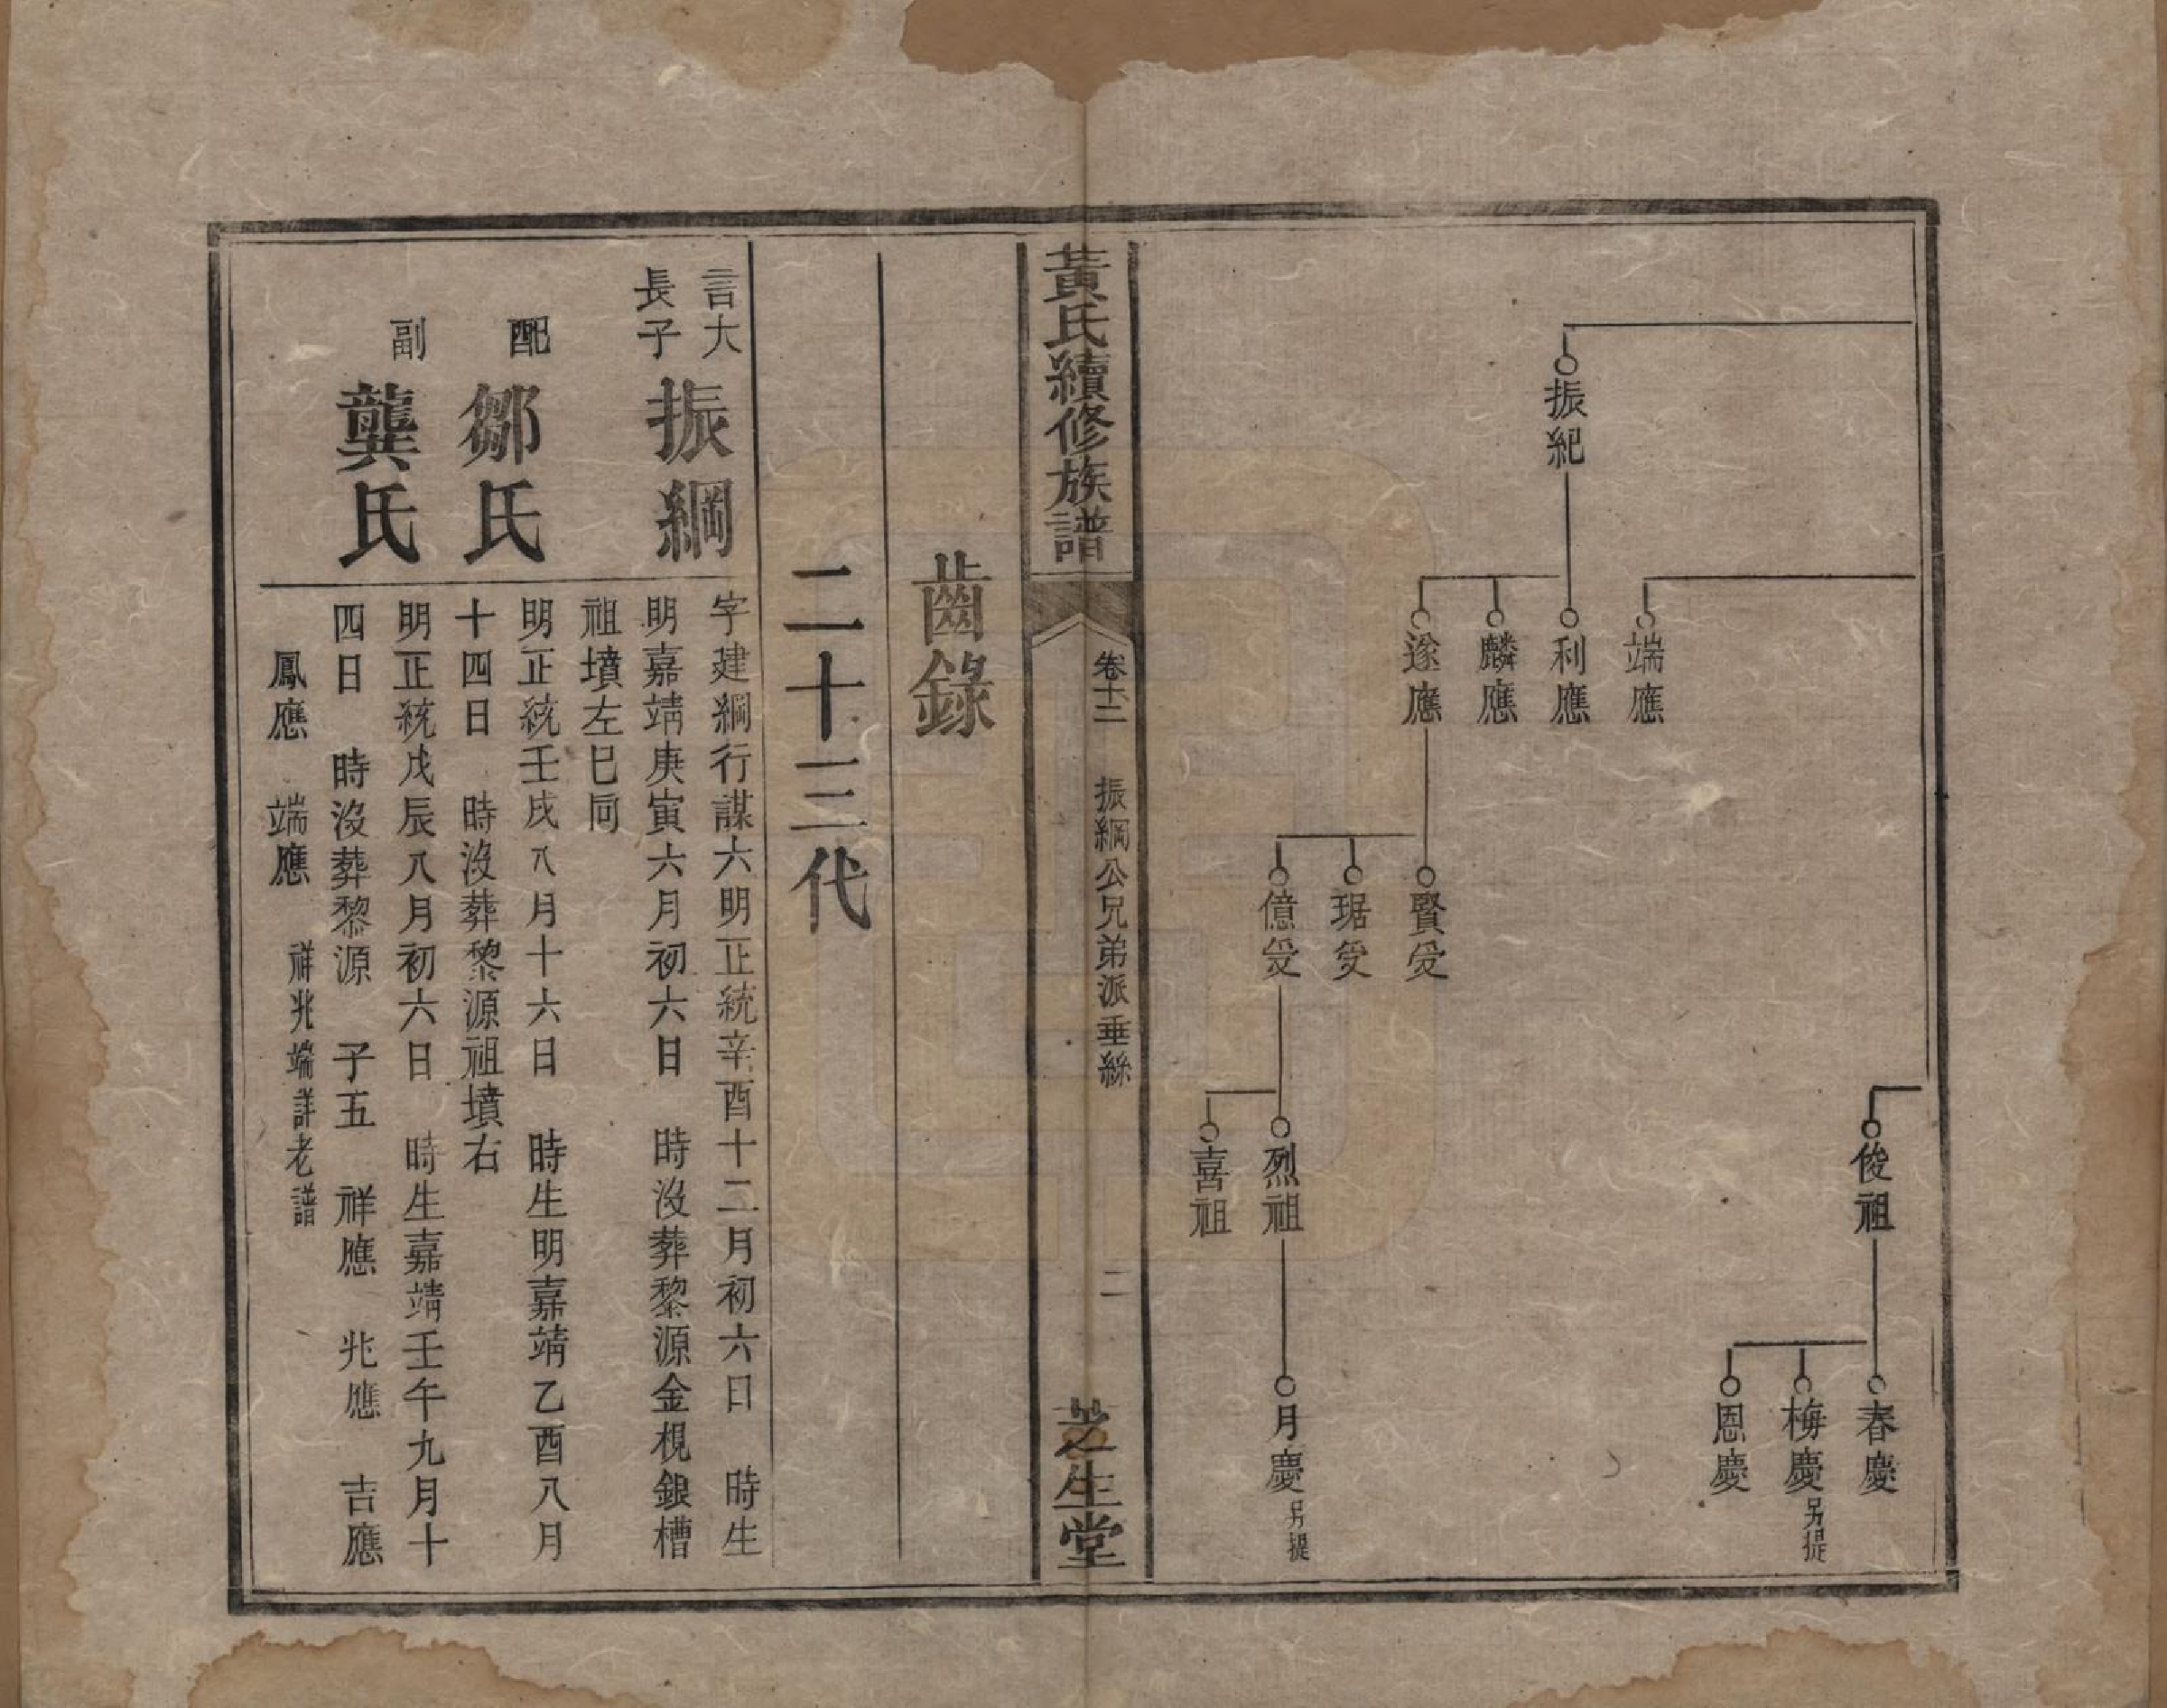 振紀
端應
利應
麟應
遂應
賢受
琚受
億受
俊祖
烈祖
喜祖
春慶
梅慶 另提
恩慶
月慶 另提
黃氏續修族譜
卷十二
振綱公兄弟派垂絲
二
芝生堂
齒錄
二十三代
言大
長子
振綱
字建綱行謀六明正統辛酉十二月初六日 時生
明嘉靖庚寅六月初六日 時沒葬黎源金梘銀槽
祖墳左巳向
配
鄒氏
明正統壬戌八月十六日 時生明嘉靖乙酉八月
十四日 時沒葬黎源祖墳右
副
龔氏
明正統戊辰八月初六日 時生嘉靖壬午九月十
四日 時沒葬黎源 子五 祥應 兆應 吉應
鳳應 端應 祥兆端詳老譜